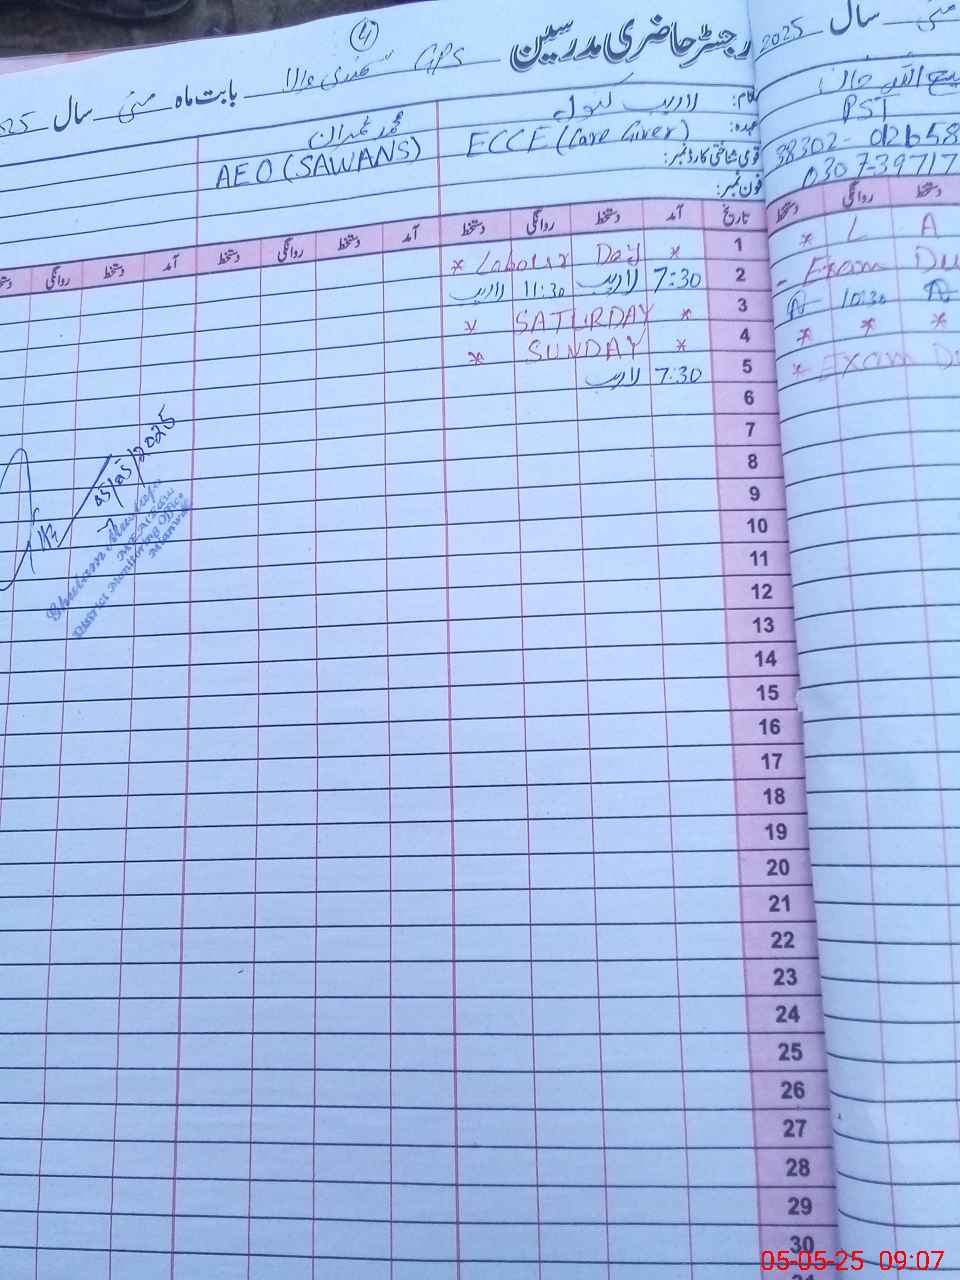 ④
رجسٹر حاضری مدرسین GPS والا بابت ماہ مئی سال 2025
نام: لاریب کنول
محمد عمران
عہدہ: ECCE (Care Giver)
AEO (SAWANS)
قومی شناختی کارڈ نمبر:
فون نمبر:
تاریخ آمد دستخط روانگی دستخط آمد دستخط روانگی دستخط آمد دستخط روانگی دستخط
1 * Labour Day *
2 7:30 لاریب 11:30 لاریب
3 * SATURDAY *
4 * SUNDAY *
5 7:30 لاریب
6
7
8
9
10
11
12
13
14
15
16
17
18
19
20
21
22
23
24
25
26
27
28
29
30
31
05/05/2025
District Monitoring Office
Mianwali
سال 2025 مئی
اللہ خان
PST
38302-012658
0307-39717
دستخط روانگی دستخط
* L A
- Exam Du
10:30
* * *
* Exam D
05-05-25 09:07